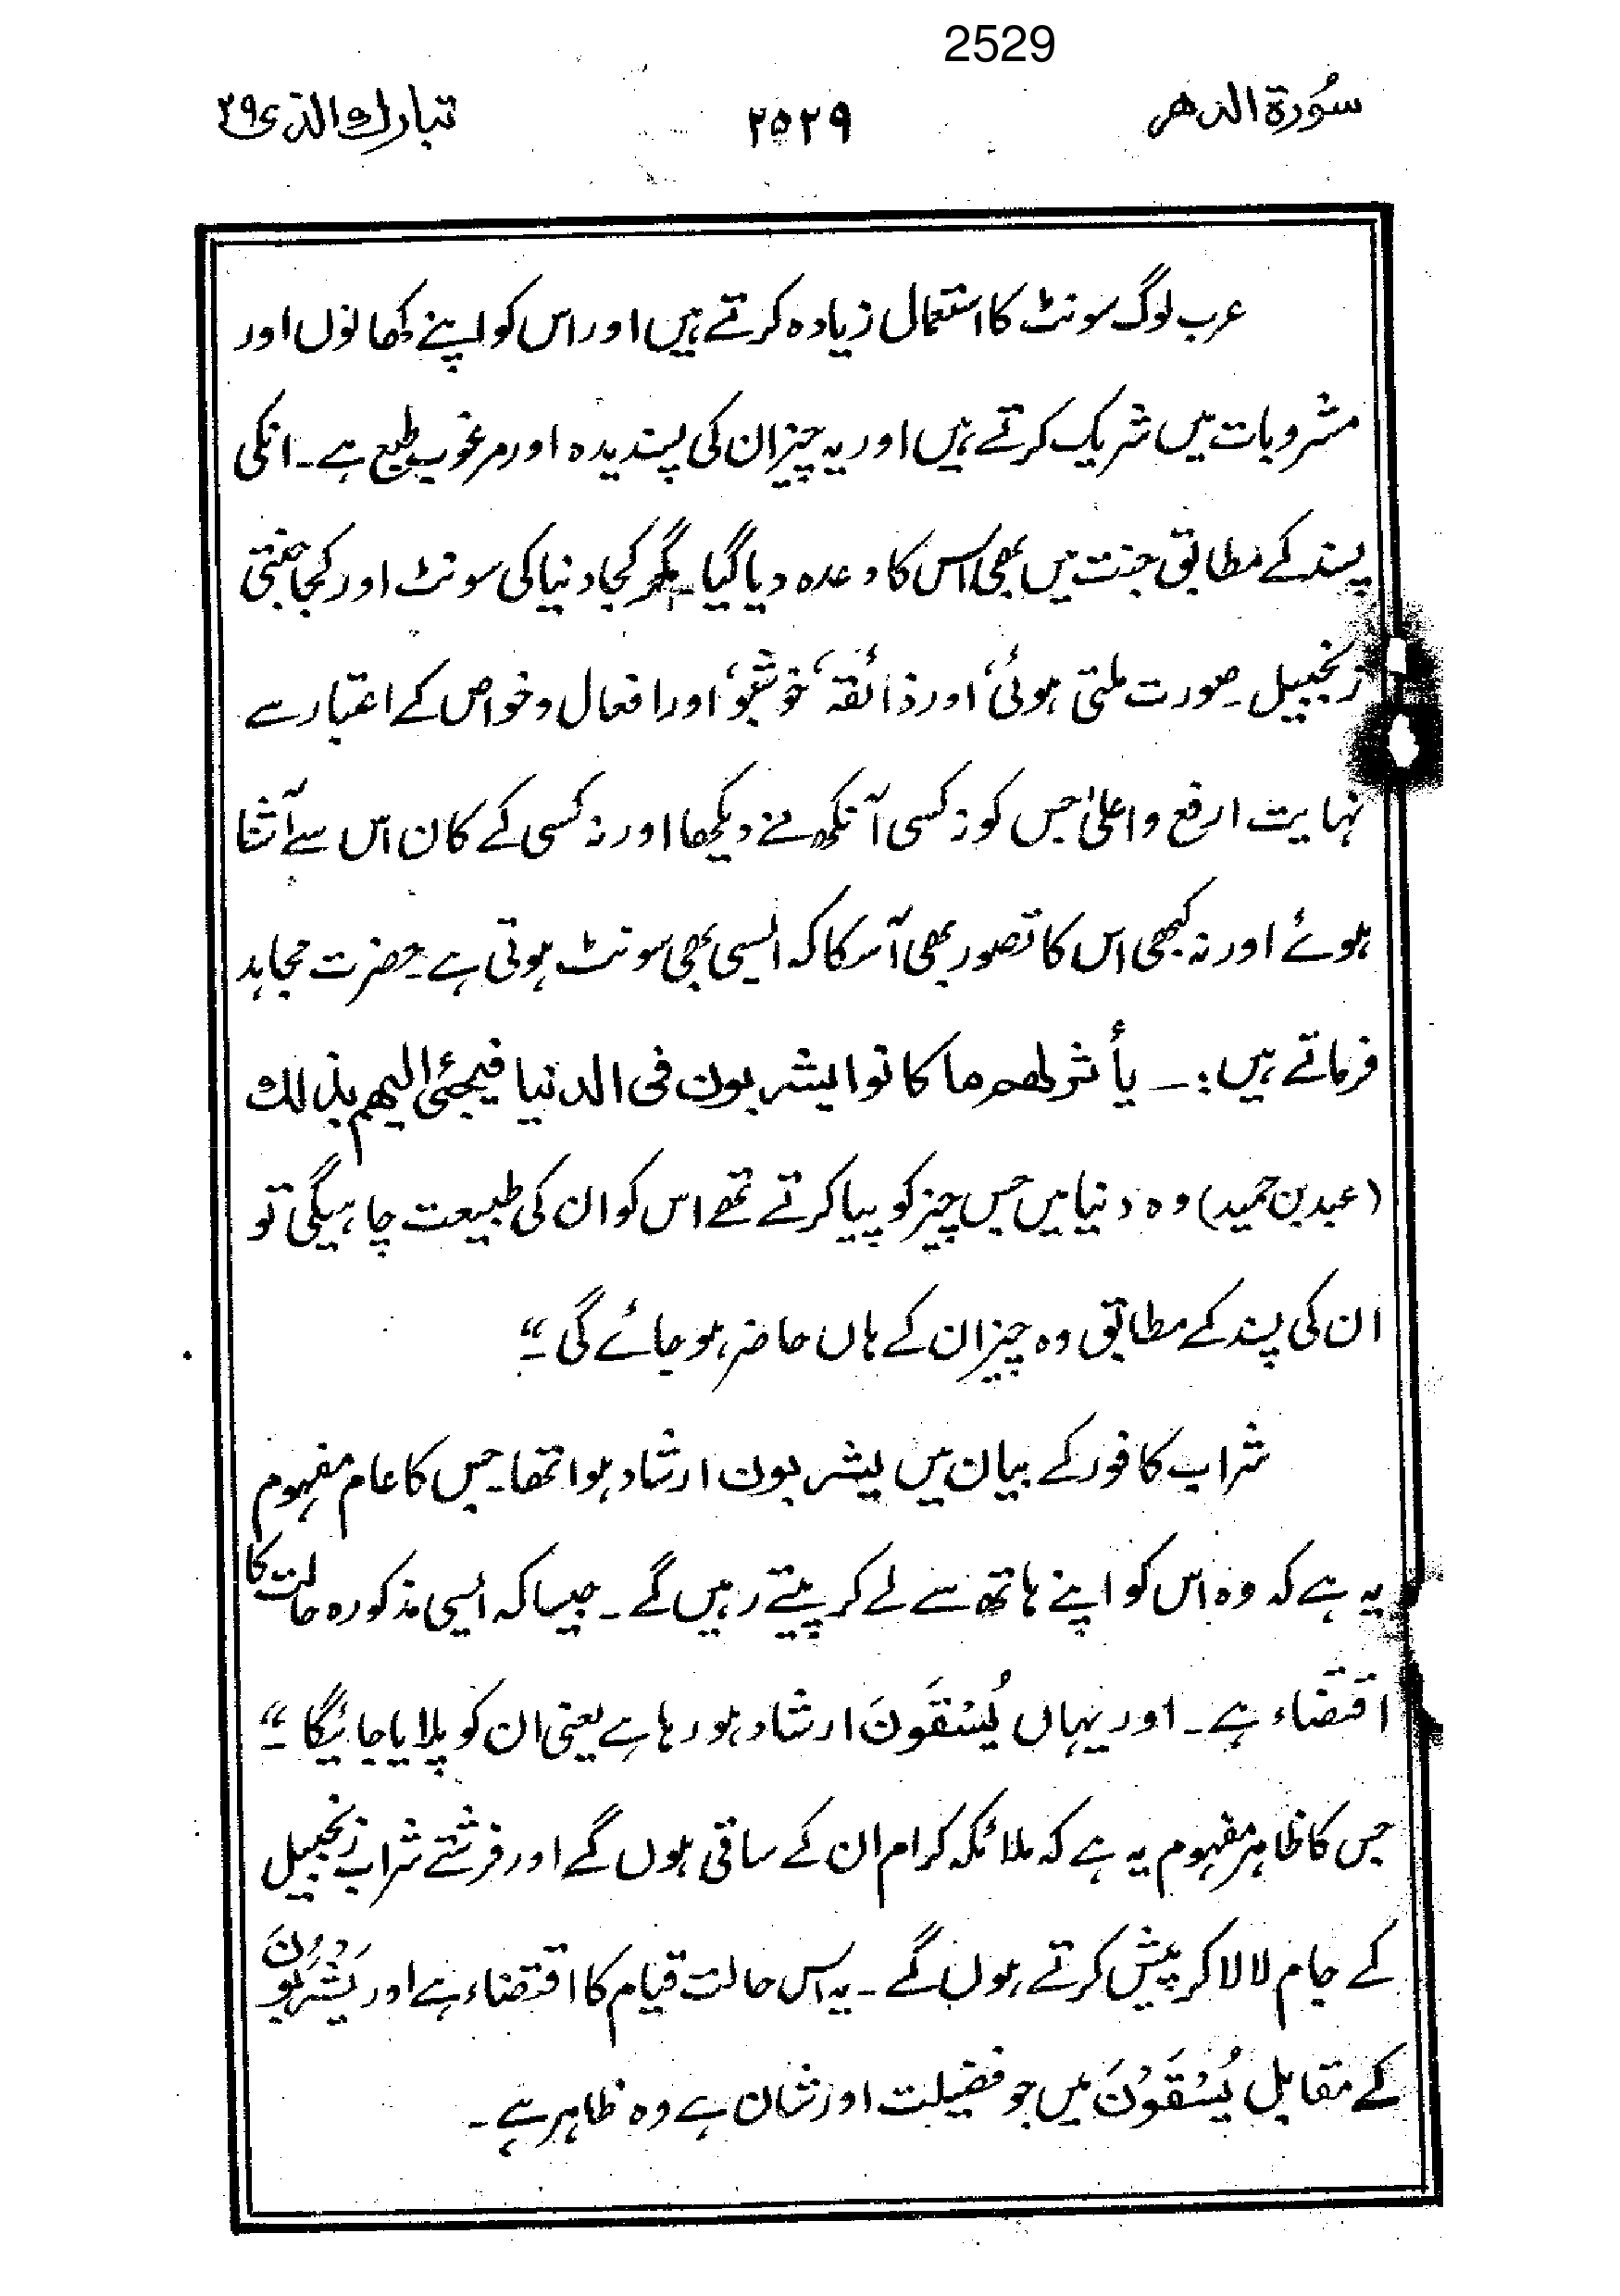 2529
سُورة الدهر ۲۵۲۹ تبارك الذی ۲۹
عرب لوگ سونٹ کا استعمال زیادہ کرتے ہیں اور اس کو اپنے کھانوں اور
مشروبات میں شریک کرتے ہیں اور یہ چیز ان کی پسندیدہ اور مرغوب طبع ہے۔ انکی
پسند کے مطابق جنت میں بھی اس کا وعدہ دیا گیا۔ مگر کجا دنیا کی سونٹ اور کجا جنتی
زنجبیل۔ صورت ملتی ہوئی، اور ذائقہ، خوشبو، اور افعال و خواص کے اعتبار سے
نہایت ارفع و اعلیٰ جس کو نہ کسی آنکھ نے دیکھا اور نہ کسی کے کان اس سے آشنا
ہوئے اور نہ کبھی اس کا تصور بھی آسکا کہ ایسی بھی سونٹ ہوتی ہے۔ حضرت مجاہد
فرماتے ہیں :۔ یأثر لهم ما کانوا یشربون فی الدنیا فیجئ الیهم بذلك
(عبد بن حمید) وہ دنیا میں جس چیز کو پیا کرتے تھے اس کو ان کی طبیعت چاہیگی تو
ان کی پسند کے مطابق وہ چیز ان کے ہاں حاضر ہو جائے گی۔“
شراب کافور کے بیان میں یشربون ارشاد ہوا تھا۔ جس کا عام مفہوم
یہ ہے کہ وہ اس کو اپنے ہاتھ سے لے کر پیتے رہیں گے ۔ جیسا کہ ایسی مذکورہ حالت کا
اقتضاء ہے۔ اور یہاں یُسْقَونَ ارشاد ہو رہا ہے یعنی ان کو پلایا جائیگا۔“
جس کا ظاہر مفہوم یہ ہے کہ ملائکہ کرام ان کے ساقی ہوں گے اور فرشتے شراب زنجبیل
کے جام لالا کر پیش کرتے ہوں گے ۔ یہ اس حالت قیام کا اقتضاء ہے اور یَشْرَبُونَ
کے مقابل یُسْقَوْنَ میں جو فضیلت اور شان ہے وہ ظاہر ہے ۔